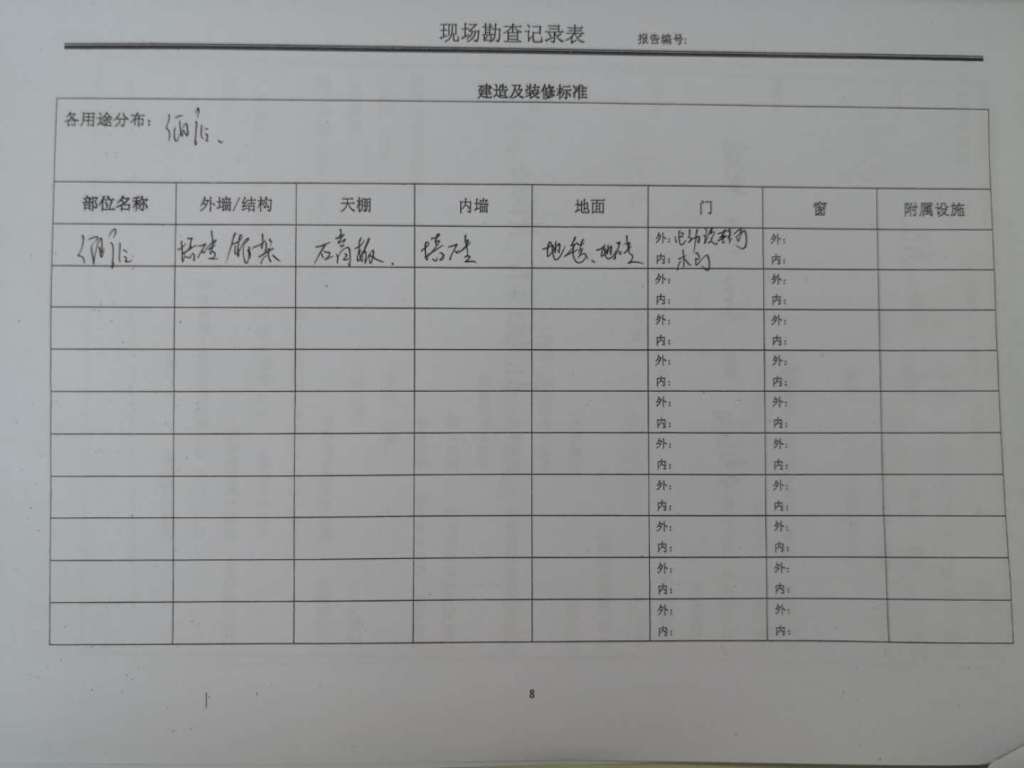 现场勘查记录表 报告编号:
建造及装修标准
各用途分布: 酒店、
部位名称 外墙/结构 天棚 内墙 地面 门 窗 附属设施
酒店 墙砖 石膏板. 墙砖 地毯、地砖 外: 电动玻利门 外:
内: 木门 内:
外: 外:
内: 内:
外: 外:
内: 内:
外: 外:
内: 内:
外: 外:
内: 内:
外: 外:
内: 内:
外: 外:
内: 内:
外: 外:
内: 内:
外: 外:
内: 内:
外: 外:
内: 内:
8